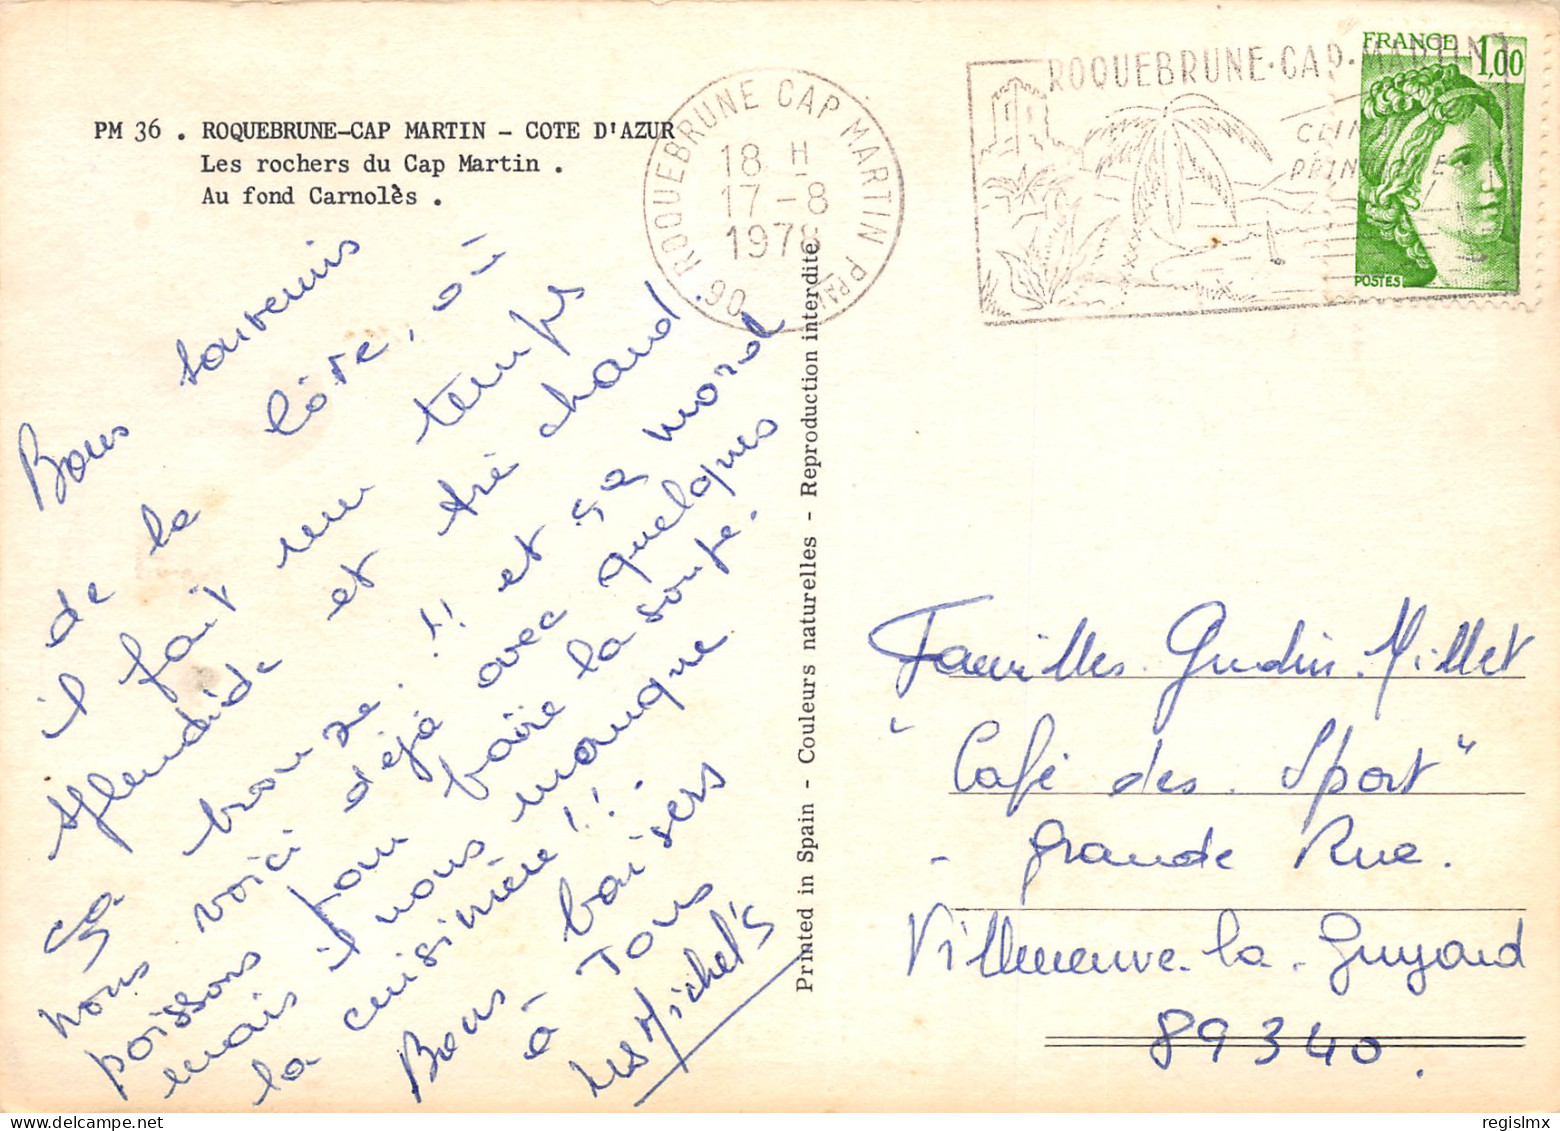 PM 36 . ROQUEBRUNE-CAP MARTIN - COTE D'AZUR
Les rochers du Cap Martin .
Au fond Carnolès .
ROQUEBRUNE CAP MARTIN
06
18 H
17 - 8
1978
ROQUEBRUNE-CAP-MARTIN
FRANCE 1,00
POSTES
Bons souvenirs
de la Côte, où
il fait un temps
splendide et tré chaud.
ça bronze !! et ça mord
nous voici déjà avec quelques
poissons pour faire la soupe.
mais il nous manque
la cuisinière !!.
Bons baisers
à Tous
Les Michel's
Printed in Spain - Couleurs naturelles - Reproduction interdite
Familles Gudin. Millet
"Café des Sport"
- Grande Rue.
Villeneuve-la-Guyard
89340.
regislmx